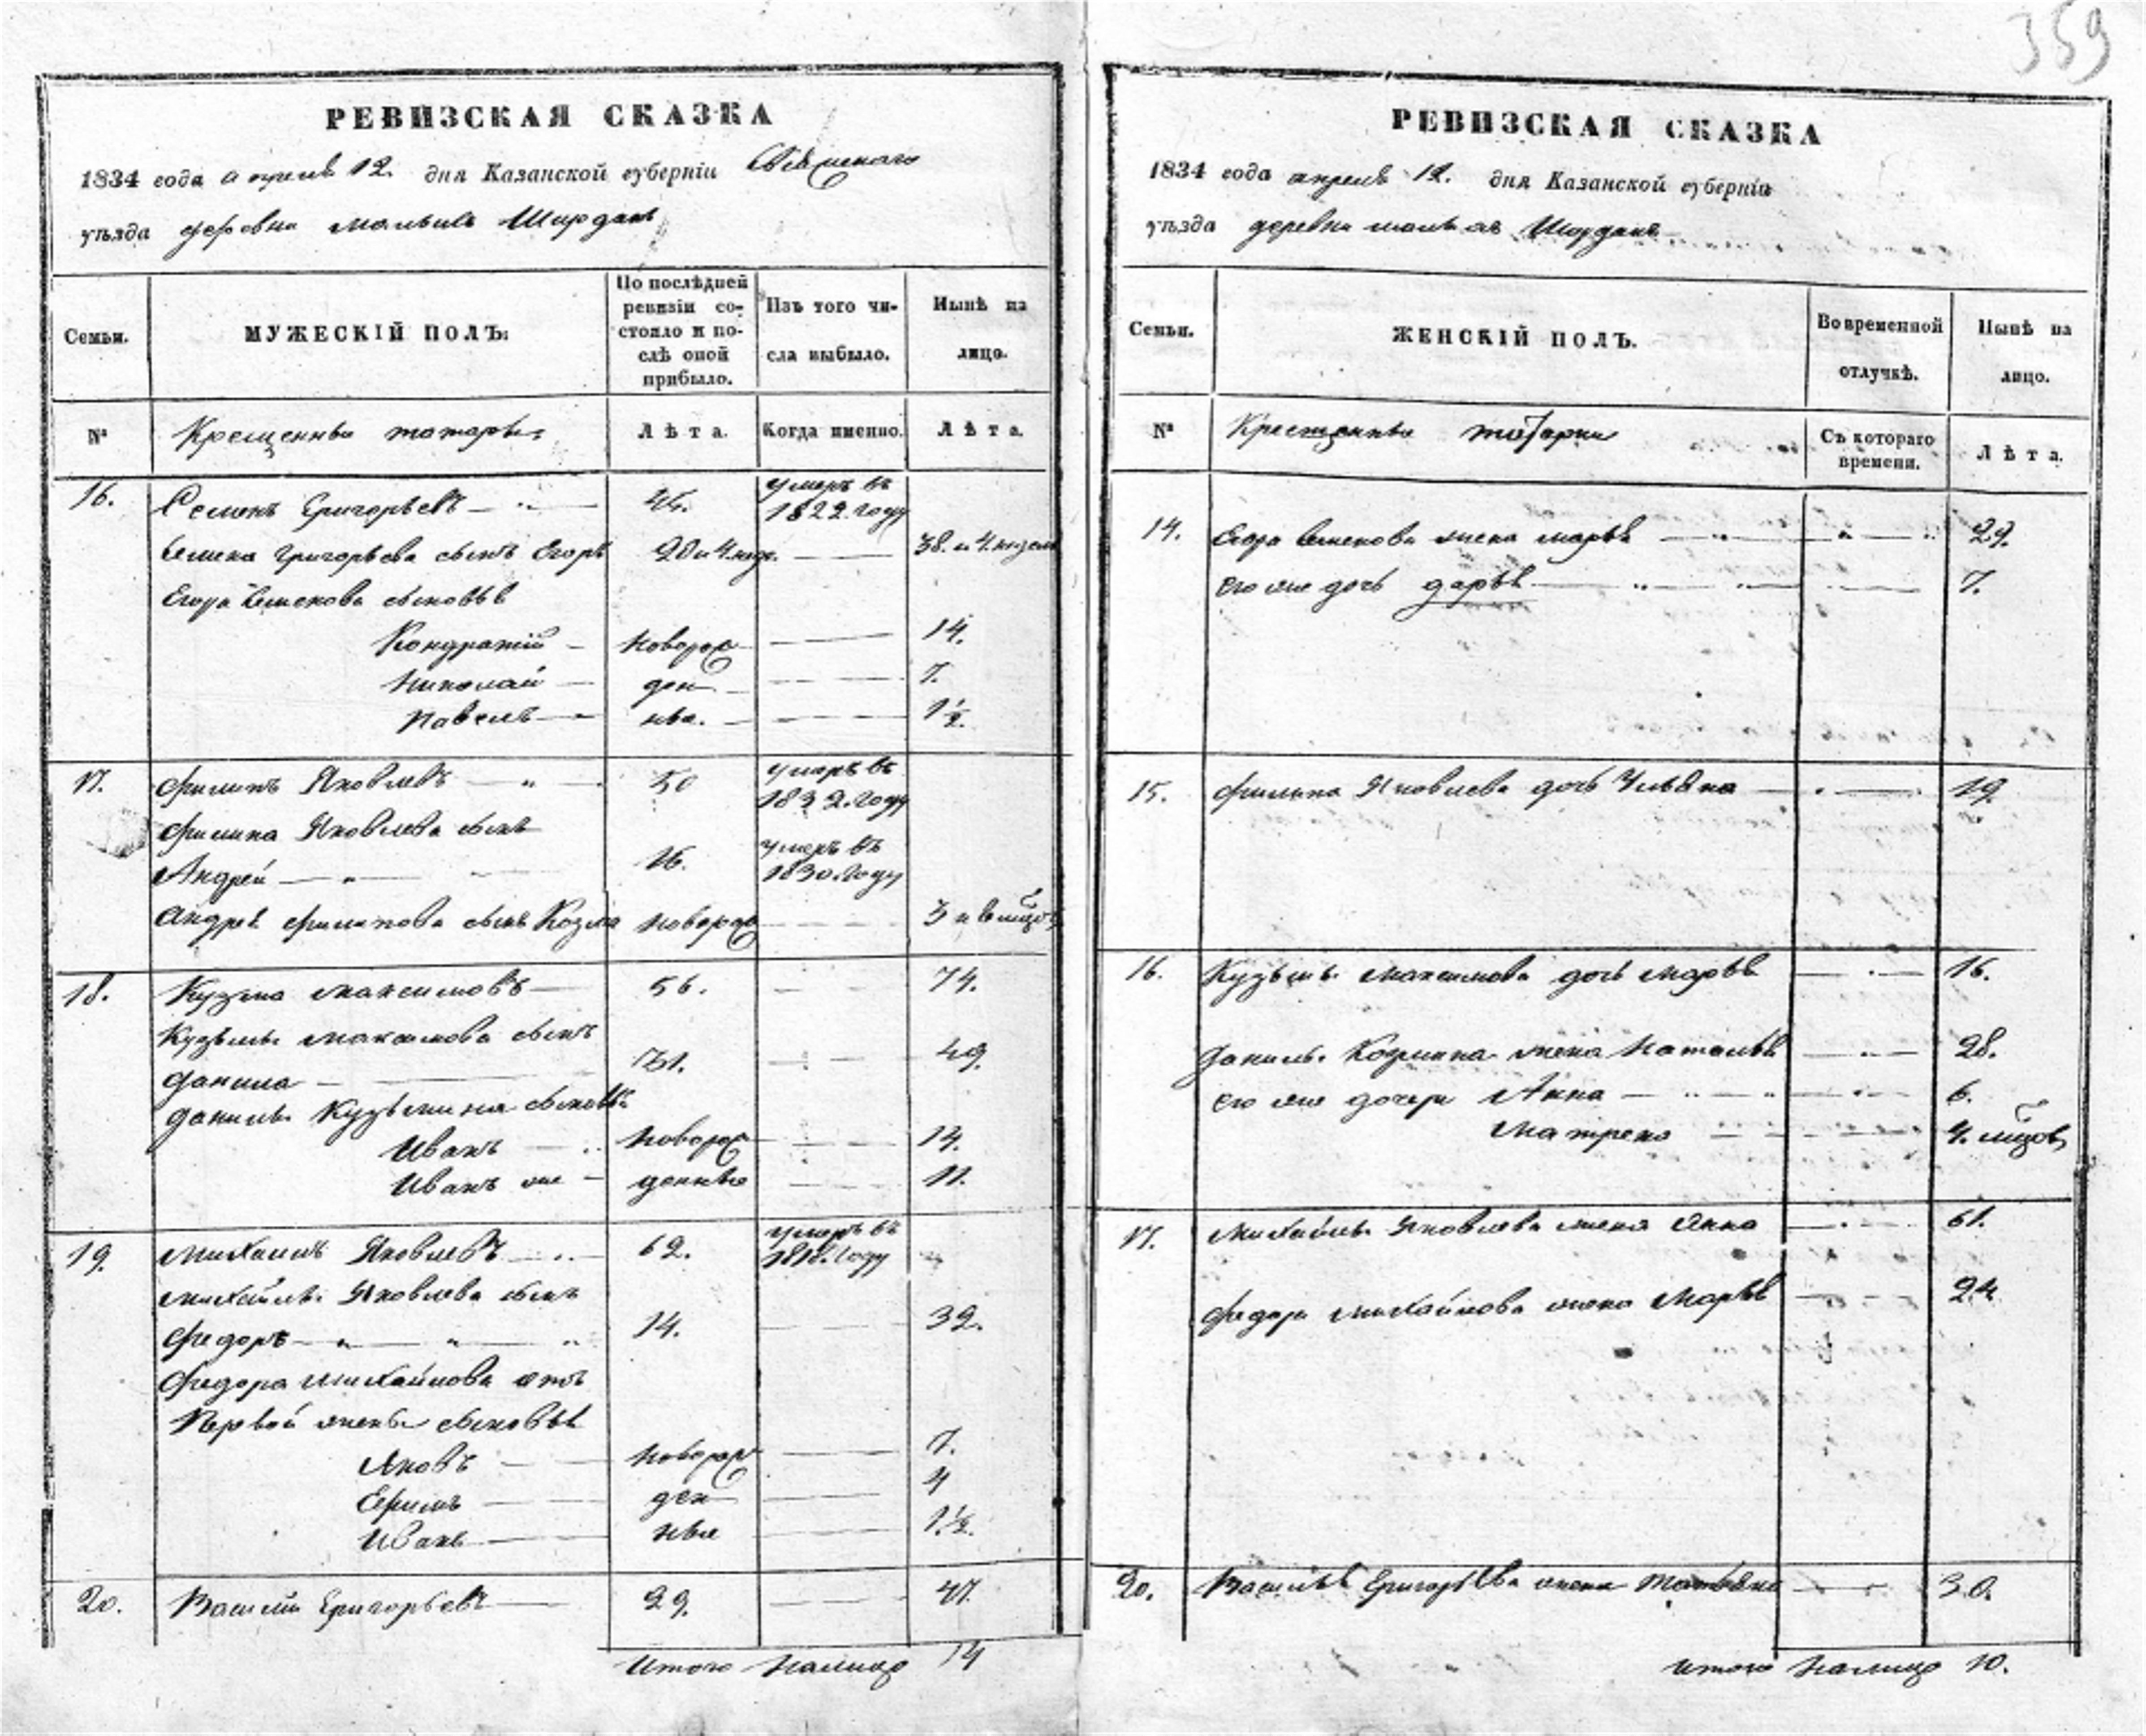 359
РЕВИЗСКАЯ СКАЗКА
1834 года апреля 12. дня Казанской губерніи Свіяжскаго
уѣзда деревни малыхъ Ширданъ
Семьи. МУЖЕСКІЙ ПОЛЪ: По послѣдней ревизіи состояло и послѣ оной прибыло. Изъ того числа выбыло. Нынѣ на лицо.
№ Крещенные татары: Лѣта. Когда именно. Лѣта.
16. Семенъ Григорьевъ 46. умеръ въ 1822. году
Семена Григорьева сынъ Егоръ 20 и 4. нед. 38. и 4. недели
Егора Семенова сыновья
Кондратій новорож 14.
Николай ден 7.
Павелъ ные. 1½.
17. Филипъ Яковлевъ 50 умеръ въ 1832. году
Филипа Яковлева сынъ
Андрей 16. умеръ въ 1830. году
Андрея Филипова сынъ Козма новорож 3 и 8 мцов
18. Кузма Максимовъ 56. 74.
Кузьмы Максимова сынъ
Данила 31. 49.
Данилы Кузьмина сыновья
Иванъ новорож 14.
Иванъ же денные 11.
19. Михаилъ Яковлевъ 62. умеръ въ 1818. году
Михайлы Яковлева сынъ
Федоръ 14. 32.
Федора Михайлова отъ
Первой жены сыновья
Яковъ новорож 7.
Ефимъ ден 4
Иванъ ные 1½.
20. Василій Григорьевъ 29. 47.
Итого налицо 14
РЕВИЗСКАЯ СКАЗКА
1834 года апреля 12. дня Казанской губерніи
уѣзда деревни малыхъ Ширданъ
Семьи. ЖЕНСКІЙ ПОЛЪ. Во временной отлучкѣ. Нынѣ на лицо.
№ Крещенные татарки Съ котораго времени. Лѣта.
14. Егора Семенова жена Марья 29.
его же дочь Дарья 7.
15. Филипа Яковлева дочь Ульяна 19.
16. Кузьмы Максимова дочь Марья 16.
Данилы Козмина жена Наталья 28.
его же дочери Анна 6.
Матрена 4. мцов
17. Михайлы Яковлева жена Анна 61.
Федора Михайлова жена Марья 24
20. Василья Григорьева жена Татьяна 30.
Итого налицо 10.